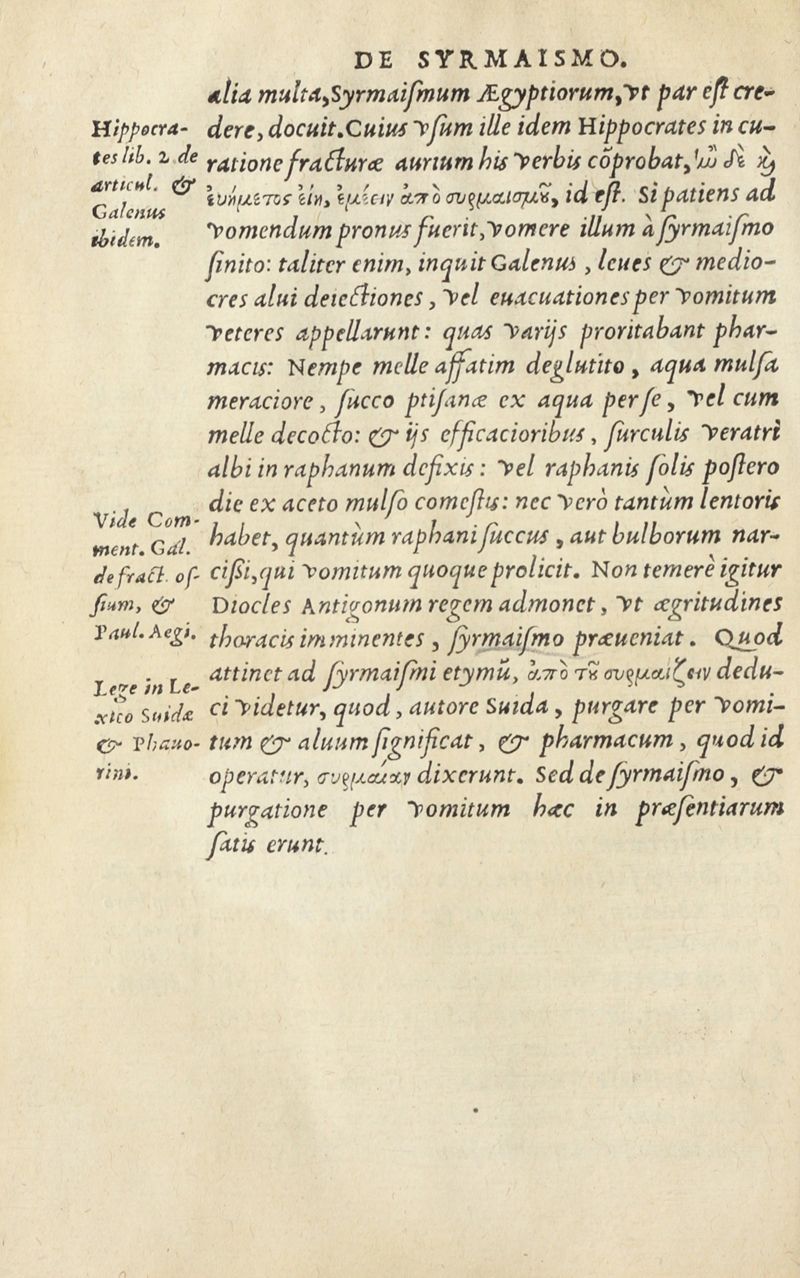 DE SYRMAISMO.
alia multa, Syrmaismum Ægyptiorum, vt par est cre-
dere, docuit. Cuius vsum ille idem Hippocrates in cu-
ratione fracturæ aurium his verbis cōprobat, ἢν δὲ καὶ
ἐυήμετος ἔῃ, ἐμέειν ἀπὸ συρμαισμοῦ, id est. Si patiens ad
vomendum pronus fuerit, vomere illum à syrmaismo
sinito: taliter enim, inquit Galenus, leues & medio-
cres alui deiectiones, vel euacuationes per vomitum
veteres appellarunt: quas varijs proritabant phar-
macis: Nempe melle affatim deglutito, aqua mulsa
meraciore, succo ptisanæ ex aqua per se, vel cum
melle decocto: & ijs efficacioribus, surculis veratri
albi in raphanum defixis: vel raphanis solis postero
die ex aceto mulso comestis: nec verò tantùm lentoris
habet, quantùm raphani succus, aut bulborum nar-
cissi, qui vomitum quoque prolicit. Non temerè igitur
Diocles Antigonum regem admonet, vt ægritudines
thoracis imminentes, syrmaismo præueniat. Quod
attinet ad syrmaismi etymū, ἀπὸ τοῦ συρμαίζειν dedu-
ci videtur, quod, autore Suida, purgare per vomi-
tum & aluum significat, & pharmacum, quod id
operatur, συρμαίαν dixerunt. Sed de syrmaismo, &
purgatione per vomitum hæc in præsentiarum
satis erunt.
Hippocra-
tes lib. 2 de
articul. &
Galenus
ibidem.
Vide Com-
ment. Gal.
de fract. os-
sium, &
Paul. Aegi.
Lege in Le-
xico Suidæ
& Phauo-
rini.